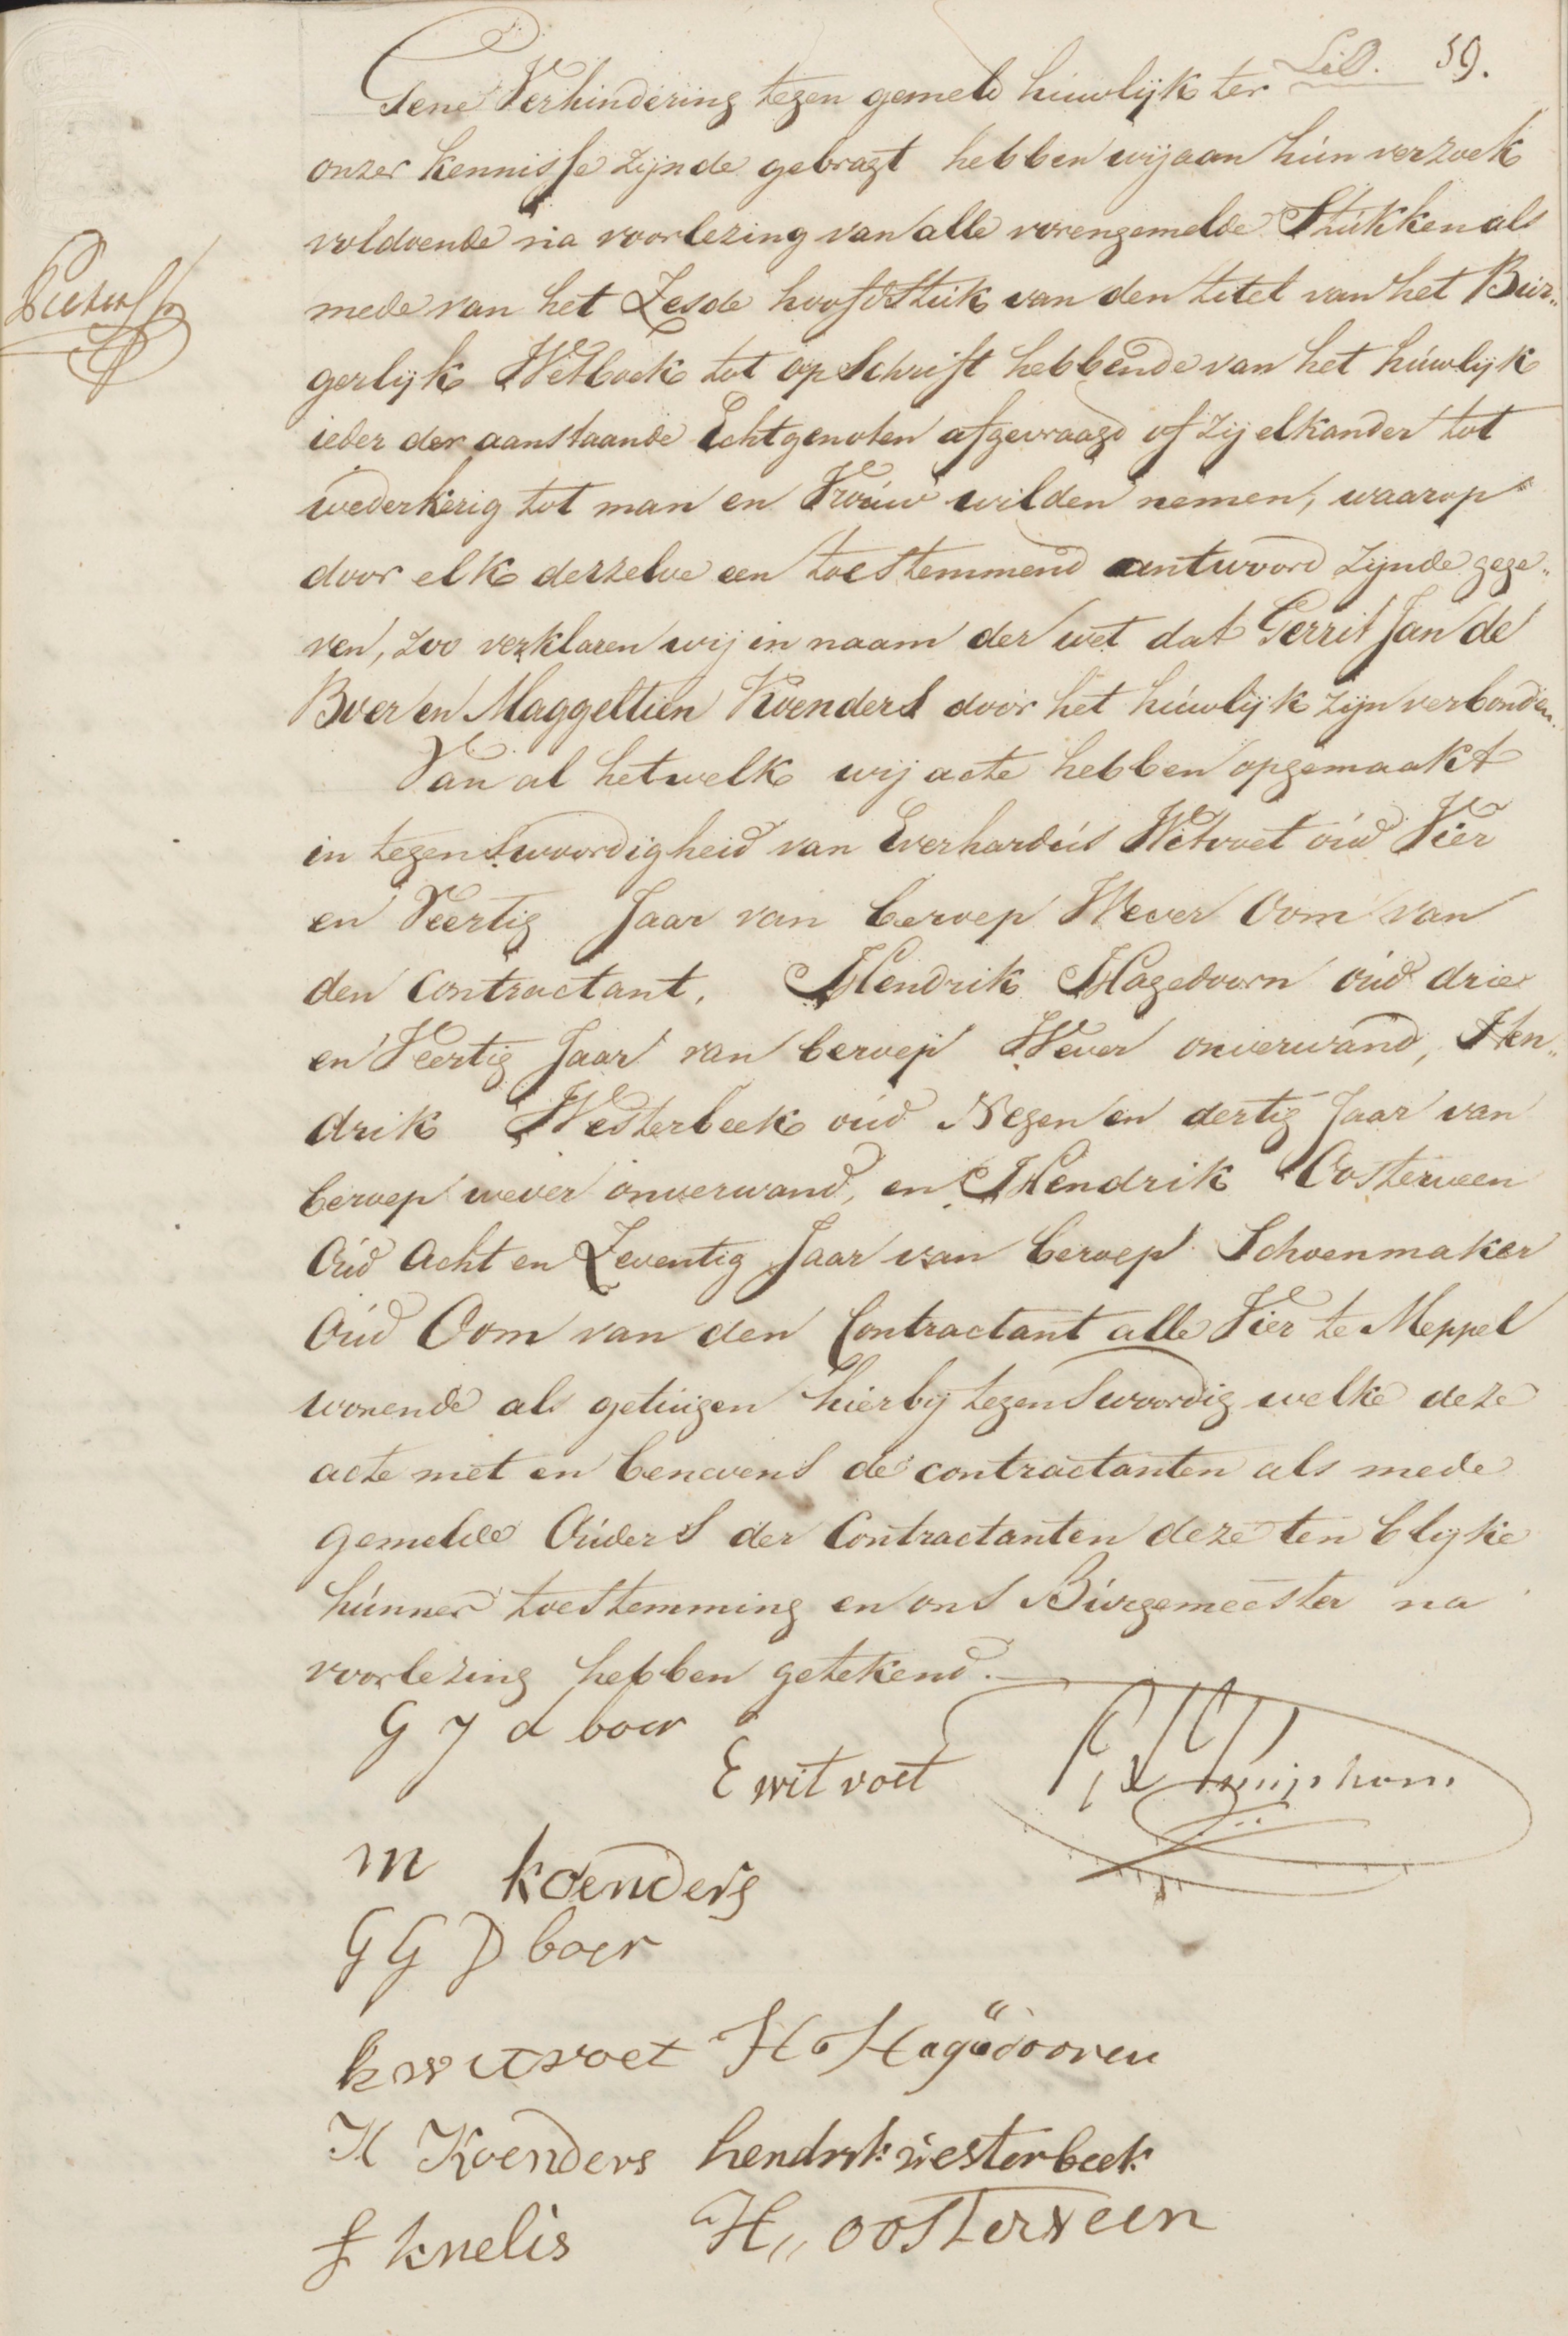 59.
Gene Verhindering tegen gemeld huwlijk ter
onzer kennisse zijnde gebragt hebben wij aan hun verzoek
voldoende na voorlezing van alle vorengemelde Stukken als
mede van het Zesde hoofdstuk van den titel van het Bur„
gerlijk Wetboek tot opschrift hebbende van het huwlijk
ieder der aanstaande Echtgenoten afgevraagd of zij elkander tot
wederkerig tot man en Vrouw wilden nemen, waarop
door elk derzelve een toestemmend antwoord zijnde gege„
ven, zoo verklaren wij in naam der wet dat Gerrit Jan de
Boer en Maggeltien Koenders door het huwlijk zijn verbonden.
Van al hetwelk wij acte hebben opgemaakt
in tegenswoordigheid van Everhardus Witvoet oud Vier
en Veertig Jaar van beroep Wever Oom van
den Contractant, Hendrik Hagedoorn oud drie
en Veertig Jaar van beroep Wever onverwand, Hen„
drik Westerbeek oud Negen en dertig Jaar van
beroep wever onverwand, en Hendrik Oosterveen
Oud Acht en Zeventig Jaar van beroep Schoenmaker
Oud Oom van den Contractant alle Vier te Meppel
wonende als getuigen hierbij tegenswoordig welke deze
acte met en benevens de contractanten als mede
gemelde Ouders der Contractanten deze ten blijke
hunner toestemming en ons Burgemeester na
voorlezing hebben getekend.
G J d boer
E wit voet
m koenders
G G D boer
k witvoet H Hagedooren
K Koenders hendrik westerbeek
f knelis H,, oosterveen